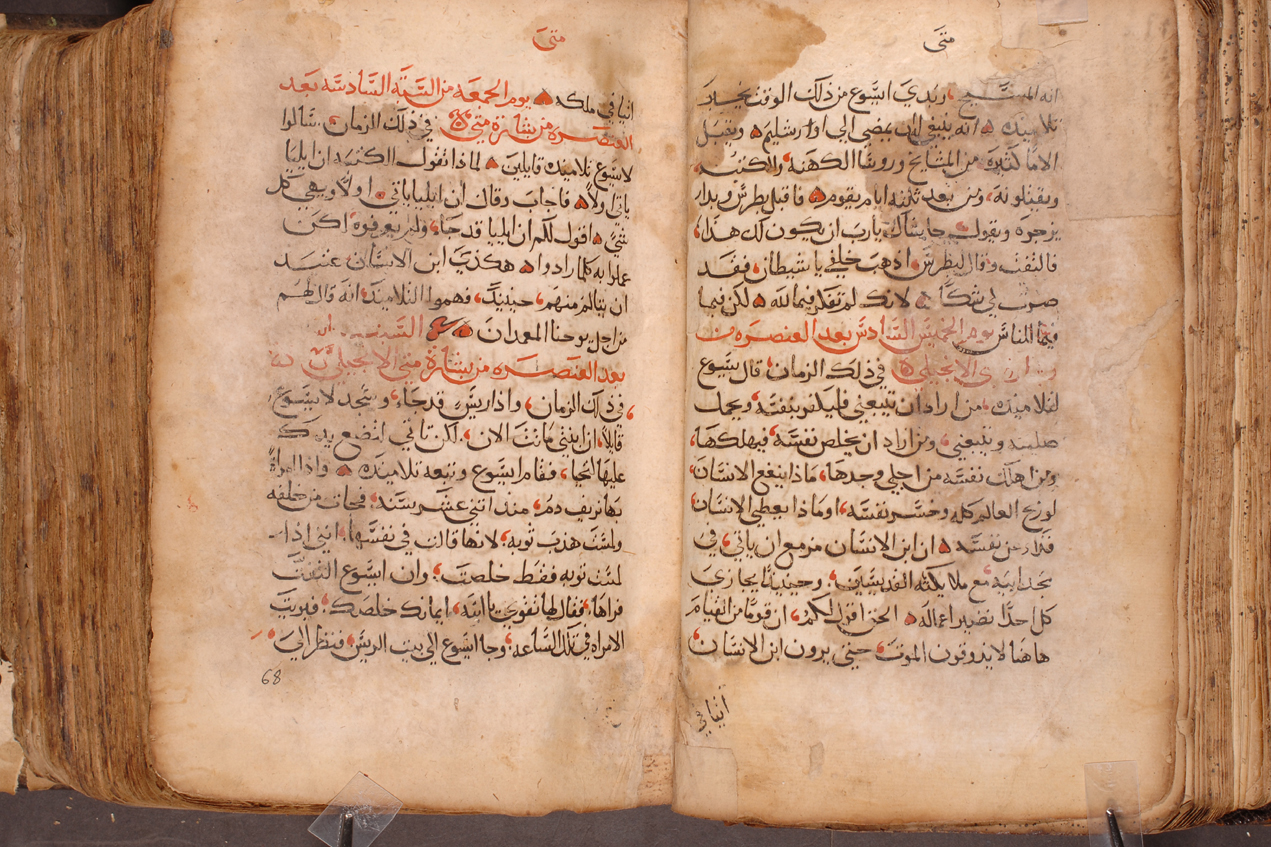 متى
انه المسيح، وبدى ايسوع من ذلك الوقت يخبر
تلاميذه انه ينبغي ان يمضي الى اورشليم ويقبل
الامًا كثيره من المشايخ وروسا الكهنه والكتبه
ويقتلونه، ومن بعد ثلثه ايام يقوم فاقبل بطرس وبدا
يزجره ويقول حاشاك يارب ان يكون لك هذا،
فالتفت وقال لبطرس اذهب خلفي ياشيطان فقد
صرت لي شكًا لانك لم تفكر فيما لله لكن فيما
فيما للناس يوم الخميس السادس بعد العنصره من
متى الانجيلي في ذلك الزمان قال يسوع
لتلاميذه، من اراد ان يتبعني فليكفر بنفسه ويحمل
صليبه ويتبعني ومن اراد ان يخلص نفسه فيهلكها،
ومن اهلك نفسه من اجلي وجدها، ماذا ينفع الانسان
لو ربح العالم كله وخسر نفسه، او ماذا يعطي الانسان
فدا عن نفسه ان ابن الانسان مزمع ان ياتي في
مجد ابيه مع ملايكته القديسين وحينيذًا يجازي
كل احدًا نضير اعماله الحق اقول لكم، ان قومًا من القيام
هاهنا لا يدوقون الموت حتى يرون ابن الانسان
اتيا في
متى
اتيا في ملكه يوم الجمعه من السته السادسه بعد
العنصره من بشارة متى في ذلك الزمان سالوا
لايسوع تلاميذه قايلين لماذا تقول الكتبه ان ايليا
ياتي اولًا فاجاب وقال ان ايليا ياتي اولًا ويهي كل
شيً اقول لكم ان ايليا قد جا، ولم يعرفوه لكن
عملوا به كلما ارادوا هكذى ابن الانسان عتيد
ان يتالم منهم، حينيذً، فهموا التلاميذ انه قال لهم
من اجل يوحنا المعمدان السبت
بعد العنصره من بشارة متى الانجيلي
في ذلك الزمان، واذا ريس قد جا، وسجد لايسوع
قايلًا، ان ابنتي ماتت الان، لكن تاتي اتضع يدك
عليها لتحيا، فقام ايسوع وتبعه تلاميذه واذا امراةً
بها نزيف دم، منذ اتني عشر سنه، فجات من خلفه
ولمست هدب توبه، لانها قالت في نفسها، انني اذا
لمست توبه فقط خلصت، وان ايسوع التفت
فراها، فقال لها تقوي يا ابنة، ايمانك خلصك، فبريت
الامراه في تلك الساعه، وجا ايسوع الى بيت الريس فنظر الى
68